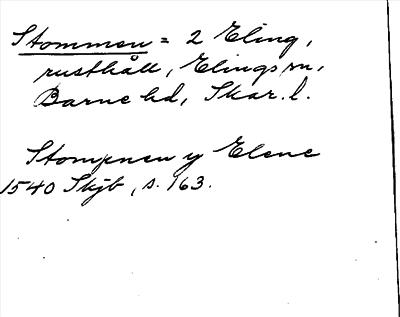 Stommen = 2 Eling,
rusthåll, Elings sn,
Barne hd, Skar. l.
Stompnen y Elene
1540 Skjb, s. 163.